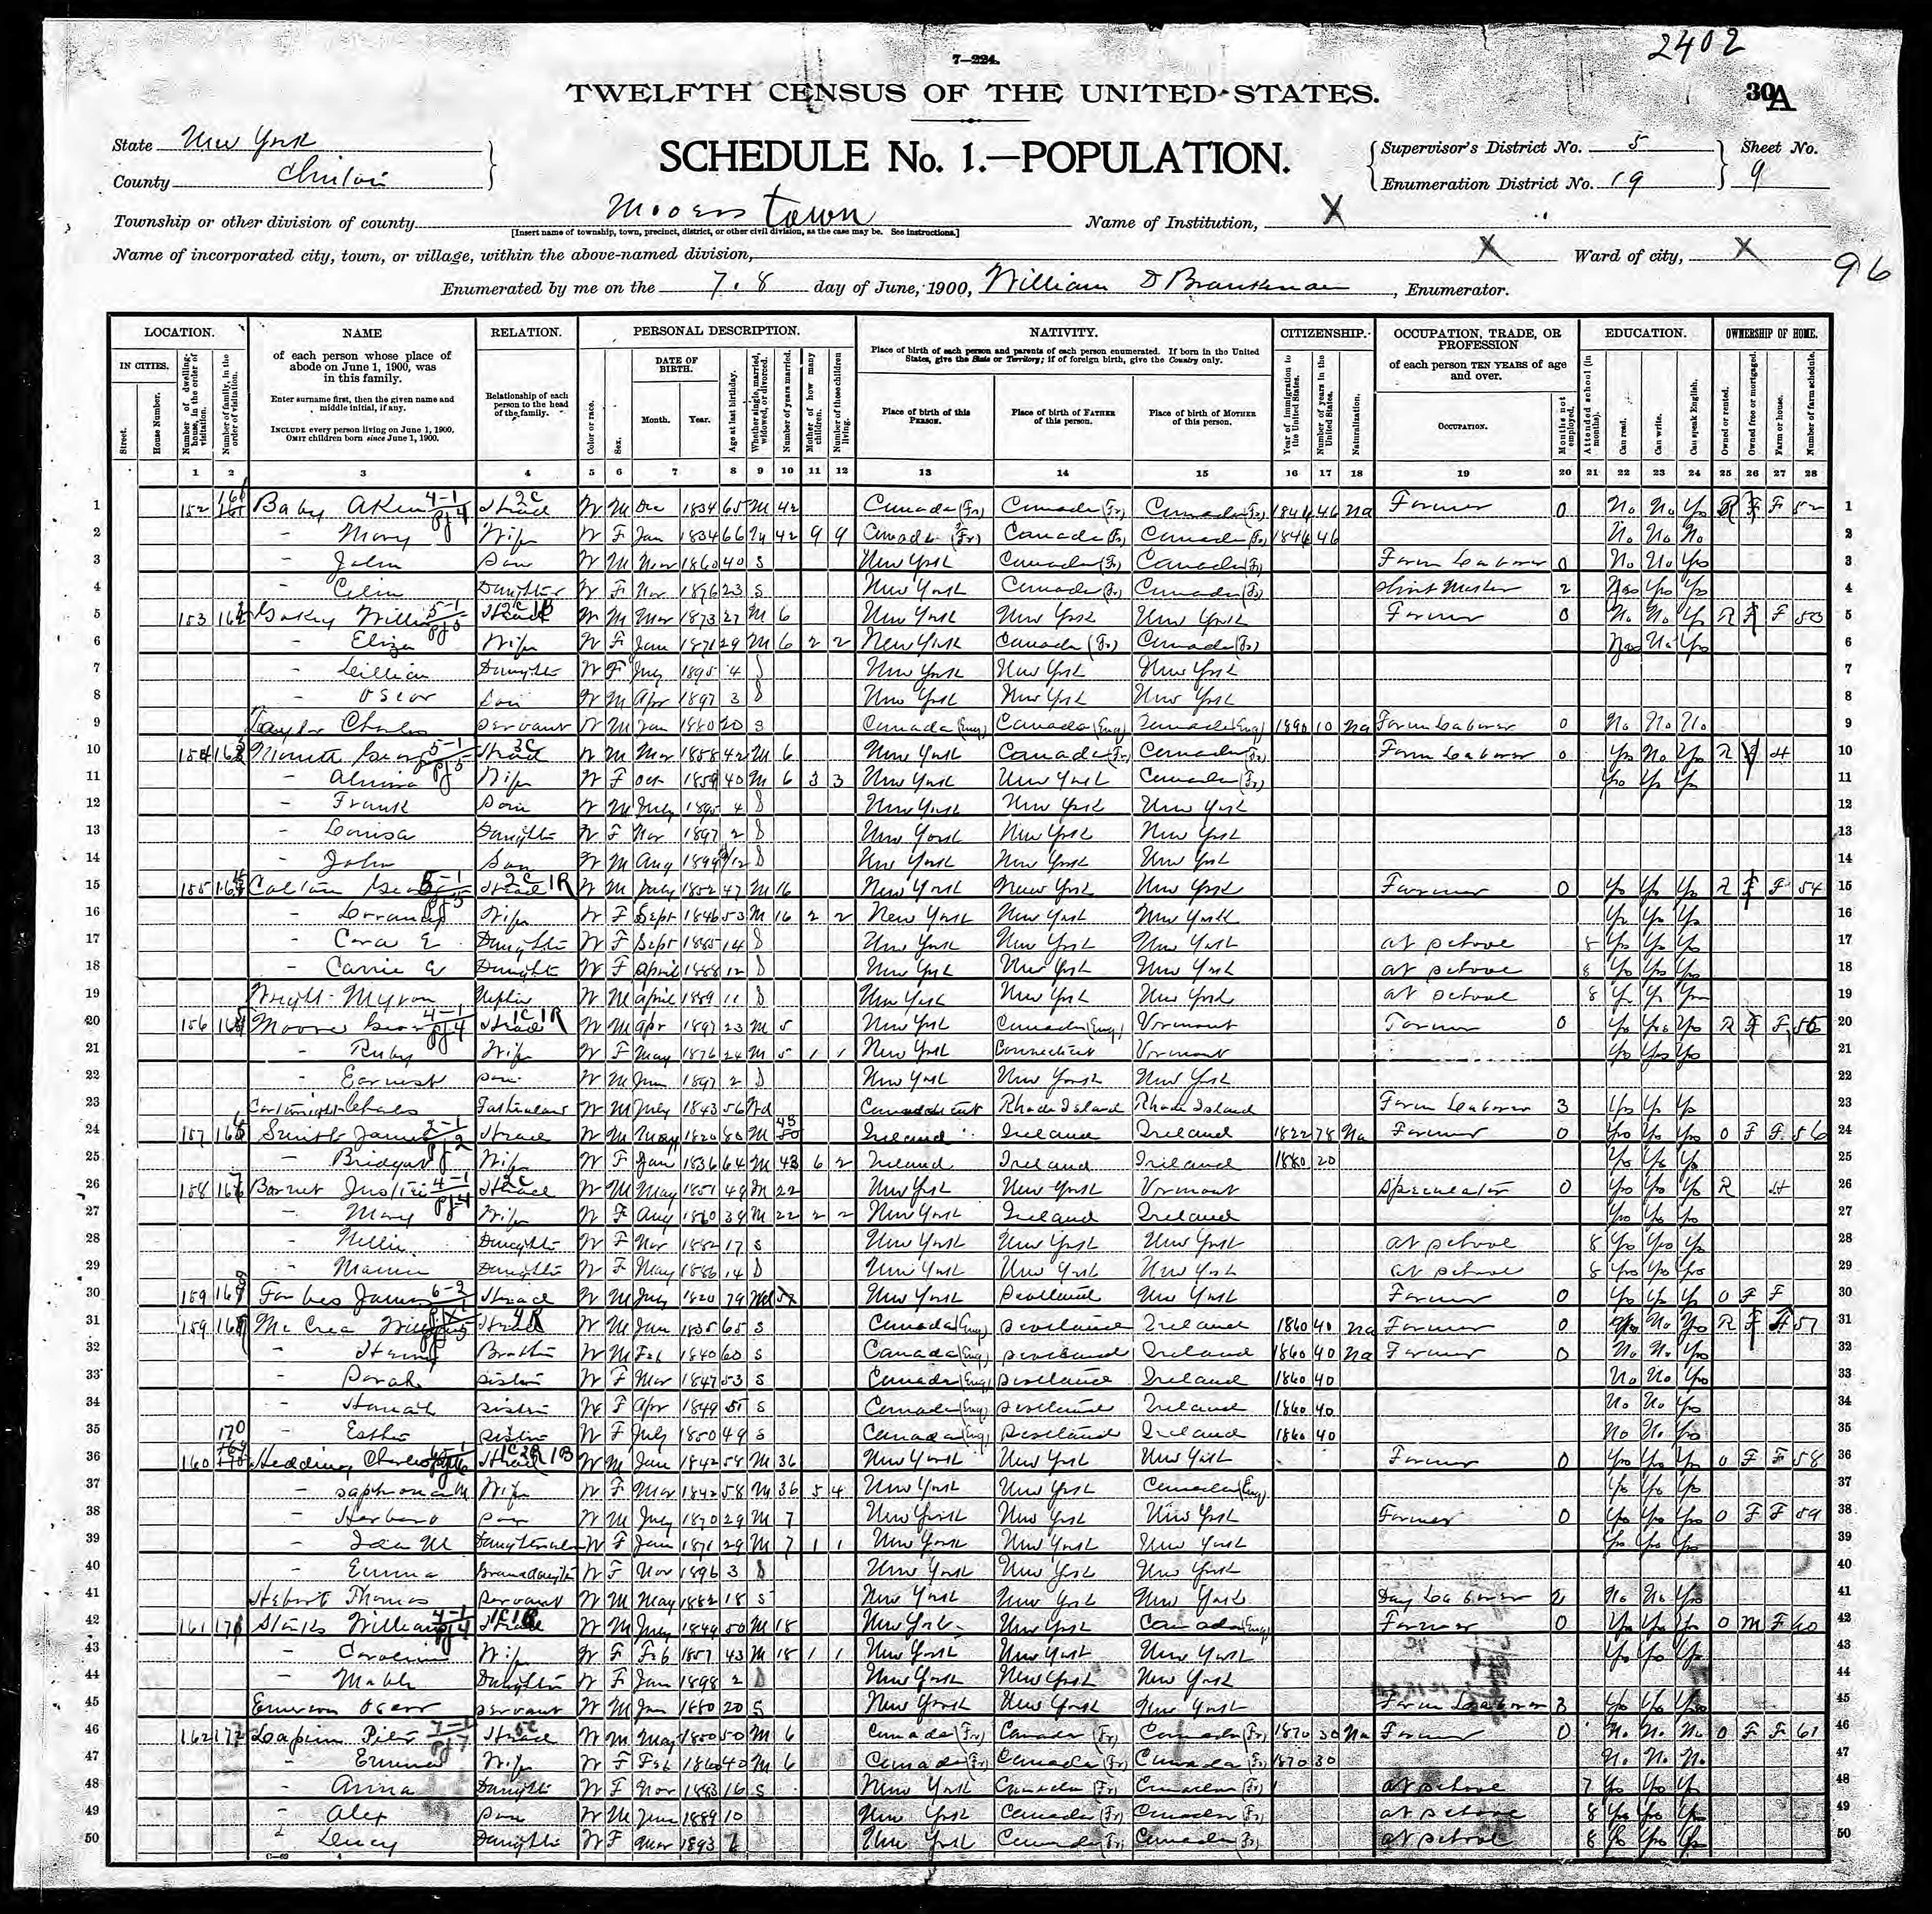 2402
7—224.
TWELFTH CENSUS OF THE UNITED STATES.
30A
State New York
County Clinton
SCHEDULE No. 1.—POPULATION.
Supervisor's District No. 5
Enumeration District No. 19
Sheet No. 9
Township or other division of county Mooers town
[Insert name of township, town, precinct, district, or other civil division, as the case may be. See instructions.]
Name of Institution, X
Name of incorporated city, town, or village, within the above-named division, X
Ward of city, X
96
Enumerated by me on the 7. 8 day of June, 1900, William D , Enumerator.
LOCATION. NAME RELATION. PERSONAL DESCRIPTION. NATIVITY. CITIZENSHIP. OCCUPATION, TRADE, OR PROFESSION EDUCATION. OWNERSHIP OF HOME.
IN CITIES. Street. House Number. Number of dwelling-house, in the order of visitation. Number of family, in the order of visitation.
of each person whose place of abode on June 1, 1900, was in this family.
Enter surname first, then the given name and middle initial, if any.
INCLUDE every person living on June 1, 1900. OMIT children born since June 1, 1900.
Relationship of each person to the head of the family.
Color or race. Sex. DATE OF BIRTH. Month. Year. Age at last birthday. Whether single, married, widowed, or divorced. Number of years married. Mother of how many children. Number of these children living.
Place of birth of each person and parents of each person enumerated. If born in the United States, give the State or Territory; if of foreign birth, give the Country only.
Place of birth of this PERSON. Place of birth of FATHER of this person. Place of birth of MOTHER of this person.
Year of immigration to the United States. Number of years in the United States. Naturalization.
of each person TEN YEARS of age and over.
OCCUPATION. Months not employed. Attended school (in months). Can read. Can write. Can speak English. Owned or rented. Owned free or mortgaged. Farm or house. Number of farm schedule.
1 2 3 4 5 6 7 8 9 10 11 12 13 14 15 16 17 18 19 20 21 22 23 24 25 26 27 28
1 152 Baby Head W M Dec 1834 65 M 42 Canada (Fr) Canada (Fr) Canada (Fr) 46 Na Farmer 0 No No Yes R F 52 1
2 – Mary Wife W F Jan 1834 66 M 42 9 9 Canada (Fr) Canada (Fr) Canada (Fr) 46 No No No 2
3 – John Son W M Nov 1860 40 S New York Canada (Fr) Canada (Fr) Farm Laborer 0 No No Yes 3
4 – Daughter W F Nov 1876 23 S New York Canada (Fr) Canada (Fr) 2 Yes Yes Yes 4
5 153 Head W M Mar 1873 27 M 6 New York New York New York Farmer 0 No No Yes R F 53 5
6 – Eliza Wife W F Jan 1871 29 M 6 2 2 New York Canada (Fr) Canada (Fr) Yes No Yes 6
7 – Lillian Daughter W F July 1895 4 S New York New York New York 7
8 – Oscar Son W M Apr 1897 3 S New York New York New York 8
9 Taylor Charles Servant W M Jan 1880 20 S Canada (Eng) Canada (Eng) Canada (Eng) 1890 10 Na Farm Laborer 0 No No No 9
10 154 Head W M Mar 1858 42 M 6 New York Canada (Fr) Canada (Fr) Farm Laborer 0 Yes No Yes R H 10
11 – Wife W F Oct 1859 40 M 6 3 3 New York New York Canada (Fr) Yes Yes Yes 11
12 – Frank Son W M July 1895 4 S New York New York New York 12
13 – Louisa Daughter W F Nov 1897 2 S New York New York New York 13
14 – John Son W M Aug 1899 9/12 S New York New York New York 14
15 155 Head W M July 1852 47 M 16 New York New York New York Farmer 0 Yes Yes Yes R F 54 15
16 – Wife W F Sept 1846 53 M 16 2 2 New York New York New York Yes Yes Yes 16
17 – Cora E Daughter W F Sept 1885 14 S New York New York New York at school 8 Yes Yes Yes 17
18 – Carrie E Daughter W F April 1888 12 S New York New York New York at school 8 Yes Yes Yes 18
19 Wright Myron W M April 1889 11 S New York New York New York at school 8 Yes Yes Yes 19
20 156 Moore Head W M Apr 23 M 5 New York Canada (Eng) Vermont Farmer 0 Yes Yes Yes R F 55 20
21 – Ruby Wife W F May 1876 24 M 5 1 1 New York Connecticut Vermont Yes Yes Yes 21
22 – Earnest Son W M Jun 1897 2 S New York New York New York 22
23 Charles W M July 1843 56 Wd Connecticut Rhode Island Rhode Island Farm Laborer 3 Yes Yes Yes 23
24 157 Smith James Head W M May 1820 80 M 43 Ireland Ireland Ireland 1822 78 Na Farmer 0 Yes Yes Yes O F F 56 24
25 – Bridget Wife W F Jan 1836 64 M 43 6 2 Ireland Ireland Ireland 1880 20 Yes Yes Yes 25
26 158 Head W M May 1851 49 M 22 New York New York Vermont Speculator 0 Yes Yes Yes R H 26
27 – Mary Wife W F Aug 1860 39 M 22 2 2 New York Ireland Ireland Yes Yes Yes 27
28 – Nellie Daughter W F Nov 1882 17 S New York New York New York at school 8 Yes Yes Yes 28
29 – Daughter W F May 1886 14 S New York New York New York at school 8 Yes Yes Yes 29
30 159 Forbes James Head W M July 1820 79 Wd New York Scotland New York Farmer 0 Yes Yes Yes O F F 30
31 159 McCrea Head W M Jan 1835 65 S Canada (Eng) Scotland Ireland 1860 40 Na Farmer 0 No Yes R 57 31
32 – Henry Brother W M Feb 1840 60 S Canada (Eng) Scotland Ireland 1860 40 Na Farmer 0 No No Yes 32
33 – Sarah Sister W F Mar 1847 53 S Canada (Eng) Scotland Ireland 1860 40 No No Yes 33
34 – Hannah Sister W F Apr 1849 51 S Canada (Eng) Scotland Ireland 1860 40 No No Yes 34
35 – Esther Sister W F July 1850 49 S Canada (Eng) Scotland Ireland 1860 40 No No Yes 35
36 160 170 Hedding Charles Head W M Jan 1842 58 M 36 New York New York New York Farmer 0 Yes Yes Yes O F F 58 36
37 – M Wife W F Mar 1842 58 M 36 5 4 New York New York Canada (Eng) Yes Yes Yes 37
38 – Herbert Son W M July 1870 29 M 7 New York New York New York Farmer 0 Yes Yes Yes O F F 59 38
39 – Ida M Daughter in law W F Jan 1871 29 M 7 1 1 New York New York New York Yes Yes Yes 39
40 – Emma Granddaughter W F Nov 1896 3 S New York New York New York 40
41 Hebert Thomas Servant W M May 1882 18 S New York New York New York Day Laborer 2 No No Yes 41
42 161 171 William Head W M July 1849 50 M 18 New York New York Canada (Eng) Farmer 0 Yes Yes Yes O M F 60 42
43 – Caroline Wife W F Feb 1857 43 M 18 1 1 New York New York New York Yes Yes Yes 43
44 – Mable Daughter W F Jan 1898 2 S New York New York New York 44
45 Oscar Servant W M Jan 1880 20 S New York New York New York Farm Laborer 3 Yes Yes Yes 45
46 162 172 Head W M May 1850 50 M 6 Canada (Fr) Canada (Fr) Canada (Fr) 1870 30 Na Farmer 0 No No No O F F 61 46
47 Wife W F Feb 1860 40 M 6 Canada (Fr) Canada (Fr) Canada (Fr) 1870 30 No No No 47
48 – Anna Daughter W F Nov 1883 16 S New York Canada (Fr) Canada (Fr) at school 7 Yes Yes Yes 48
49 – Alex Son W M Jun 1889 10 New York Canada (Fr) Canada (Fr) at school 8 Yes Yes Yes 49
50 Lucy Daughter W F Mar 1893 New York Canada (Fr) Canada (Fr) at school 8 Yes Yes Yes 50